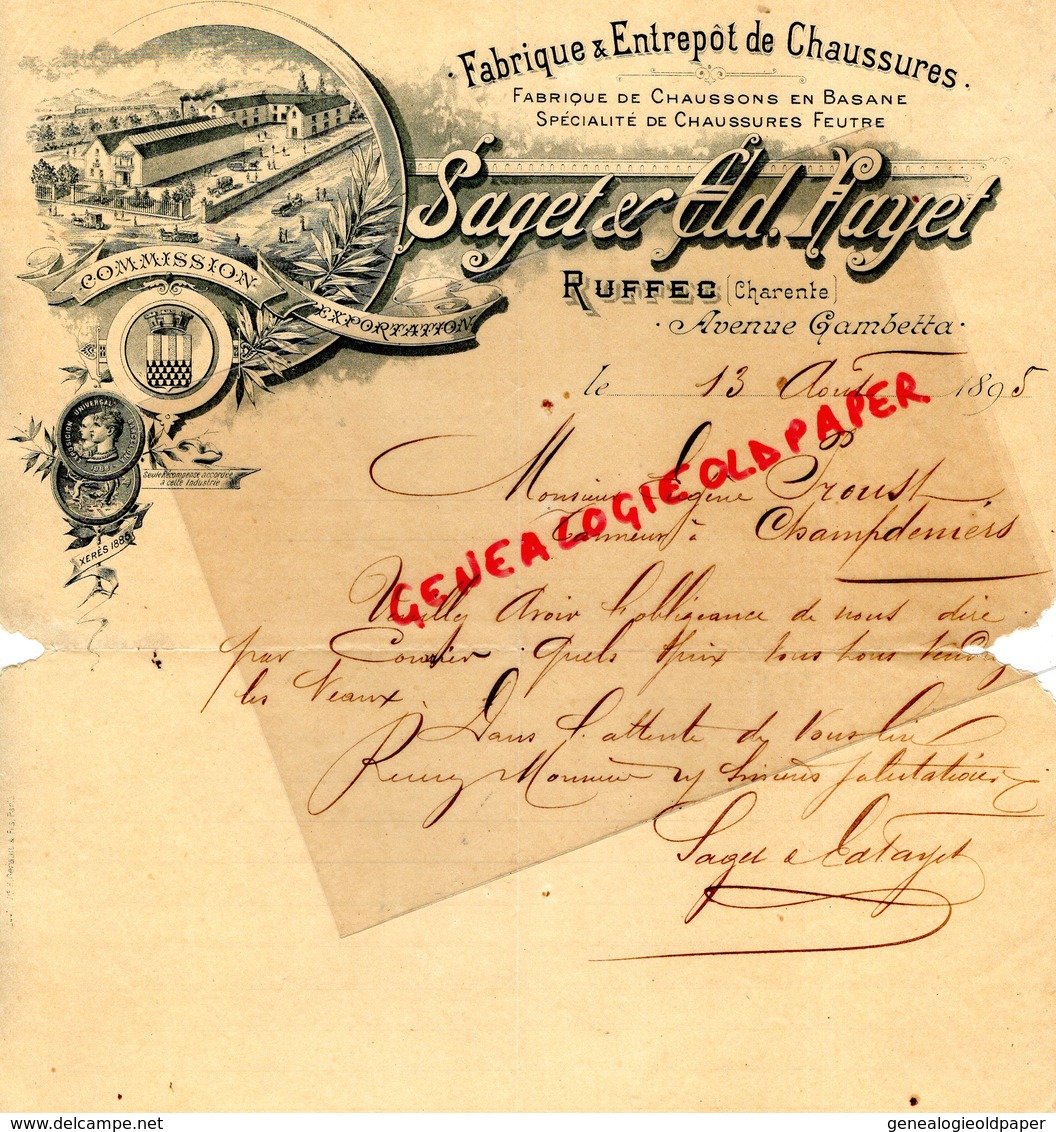 · Fabrique & Entrepôt de Chaussures ·
FABRIQUE DE CHAUSSONS EN BASANE
SPÉCIALITÉ DE CHAUSSURES FEUTRE
Saget & Ed. Fayet
RUFFEC (Charente)
· Avenue Gambetta ·
COMMISSION
EXPORTATION
le 13 Août 1895
EXPOSICION UNIVERSAL
Seule Récompense accordée
à cette Industrie
XERÈS 1885
Monsieur Eugène Proust
Tanneur à Champdeniers
Veuillez avoir l'obligeance de nous dire
par Courrier quels prix vous nous vendez
les Veaux.
Dans l'attente de vous lire
Recevez Monsieur nos sincères salutations
Saget & Ed Fayet
GENEALOGIEOLDPAPER
delcampe.net
genealogieoldpaper